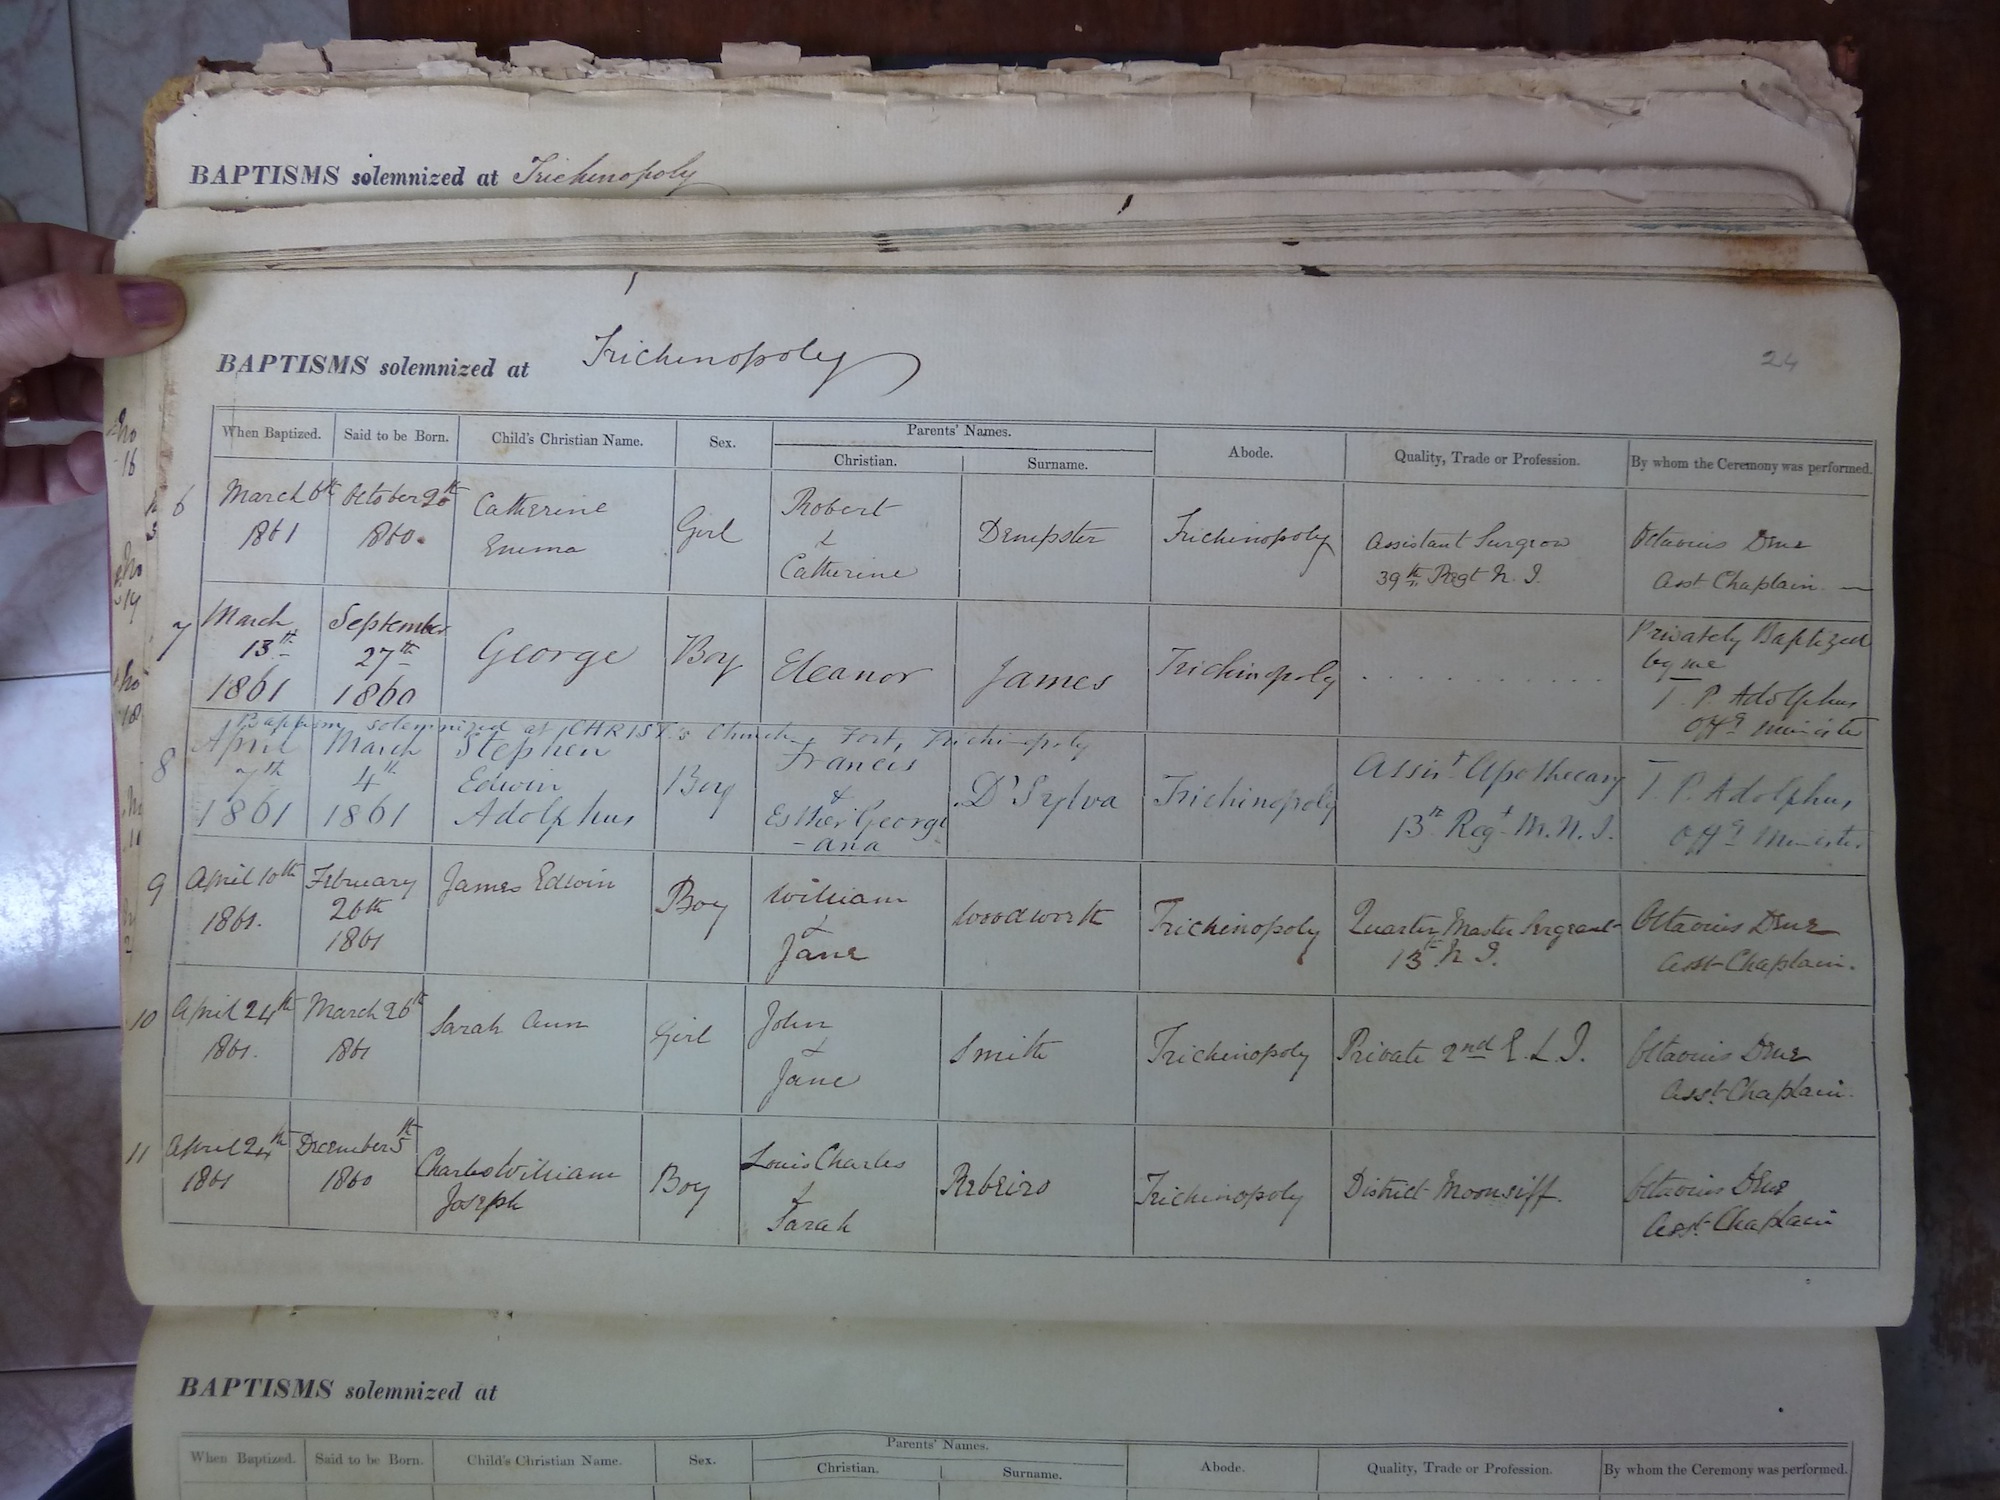 BAPTISMS solemnized at Trichinopoly
BAPTISMS solemnized at Trichinopoly
24
When Baptized. Said to be Born. Child's Christian Name. Sex. Parents' Names. Abode. Quality, Trade or Profession. By whom the Ceremony was performed.
Christian. Surname.
6 March 6th 1861 October 20th 1860. Catherine Emma Girl Robert & Catherine Dempster Trichinopoly Assistant Surgeon 39th Regt N. I. Octavius Dene Asst Chaplain —
7 March 13th 1861 September 27th 1860 George Boy Eleanor James Trichinopoly . . . . . . . . . . . Privately Baptized by me T. P. Adolphus Offg Minister
Baptism solemnized at CHRIST's Church, Fort, Trichinopoly
8 April 7th 1861 March 4th 1861 Stephen Edwin Adolphus Boy Francis & Esther Georgi-ana D'Sylva Trichinopoly Assist Apothecary 13th Regt M. N. I. T. P. Adolphus, Offg Minister
9 April 10th 1861. February 26th 1861 James Edwin Boy William & Jane Woodworth Trichinopoly Quarter Master Sergeant 13th N I. Octavius Dene Asst Chaplain.
10 April 24th 1861. March 26th 1861 Sarah Ann Girl John & Jane Smith Trichinopoly Private 2nd E. L. I. Octavius Dene Asst Chaplain.
11 April 24th 1861 December 5th 1860 Charles William Joseph Boy Louis Charles & Sarah Rebeiro Trichinopoly District Moonsiff. Octavius Dene Asst Chaplain
BAPTISMS solemnized at
When Baptized. Said to be Born. Child's Christian Name. Sex. Parents' Names. Abode. Quality, Trade or Profession. By whom the Ceremony was performed.
Christian. Surname.